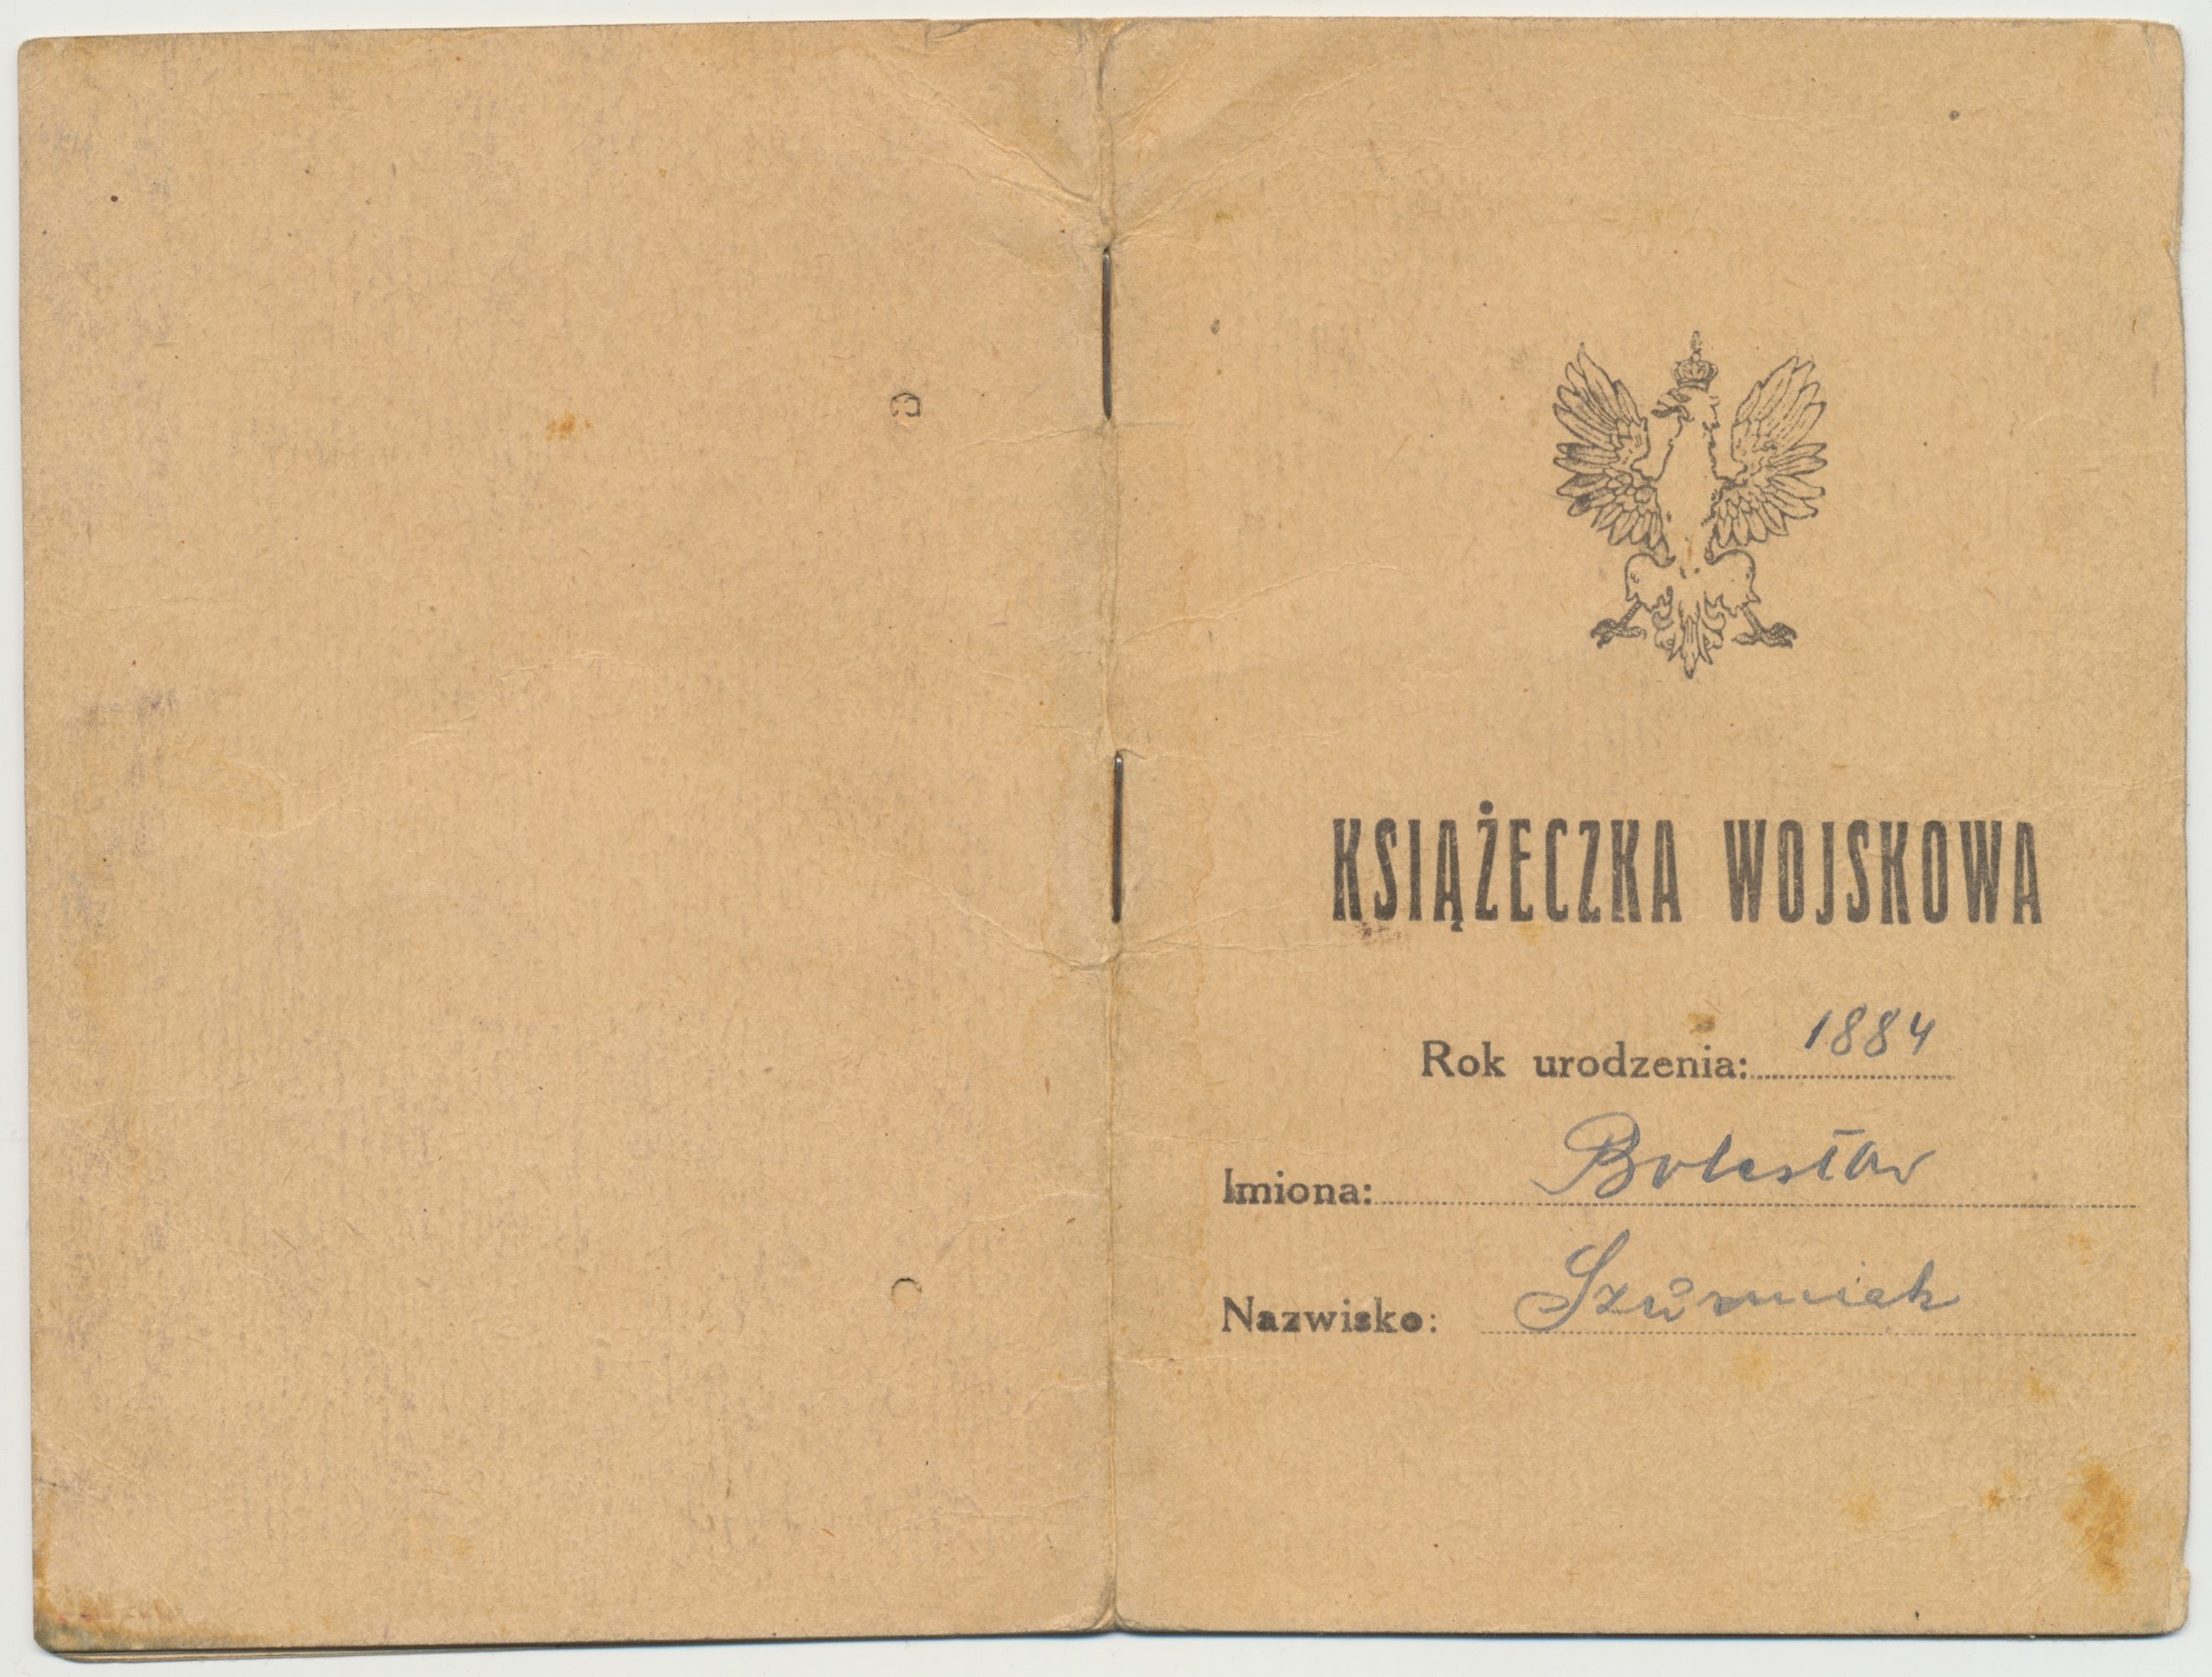 KSIĄŻECZKA WOJSKOWA
Rok urodzenia: 1884
Imiona: Bolesław
Nazwisko: